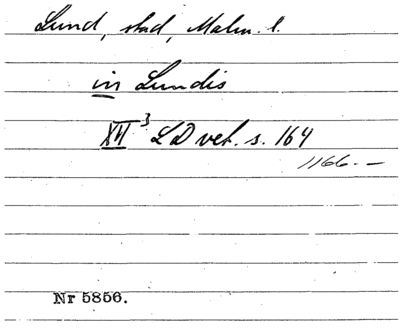 Lund, stad, Malm. l.
in Lundis
XII 3 LD vet. s. 164
1166.—
Nr 5856.